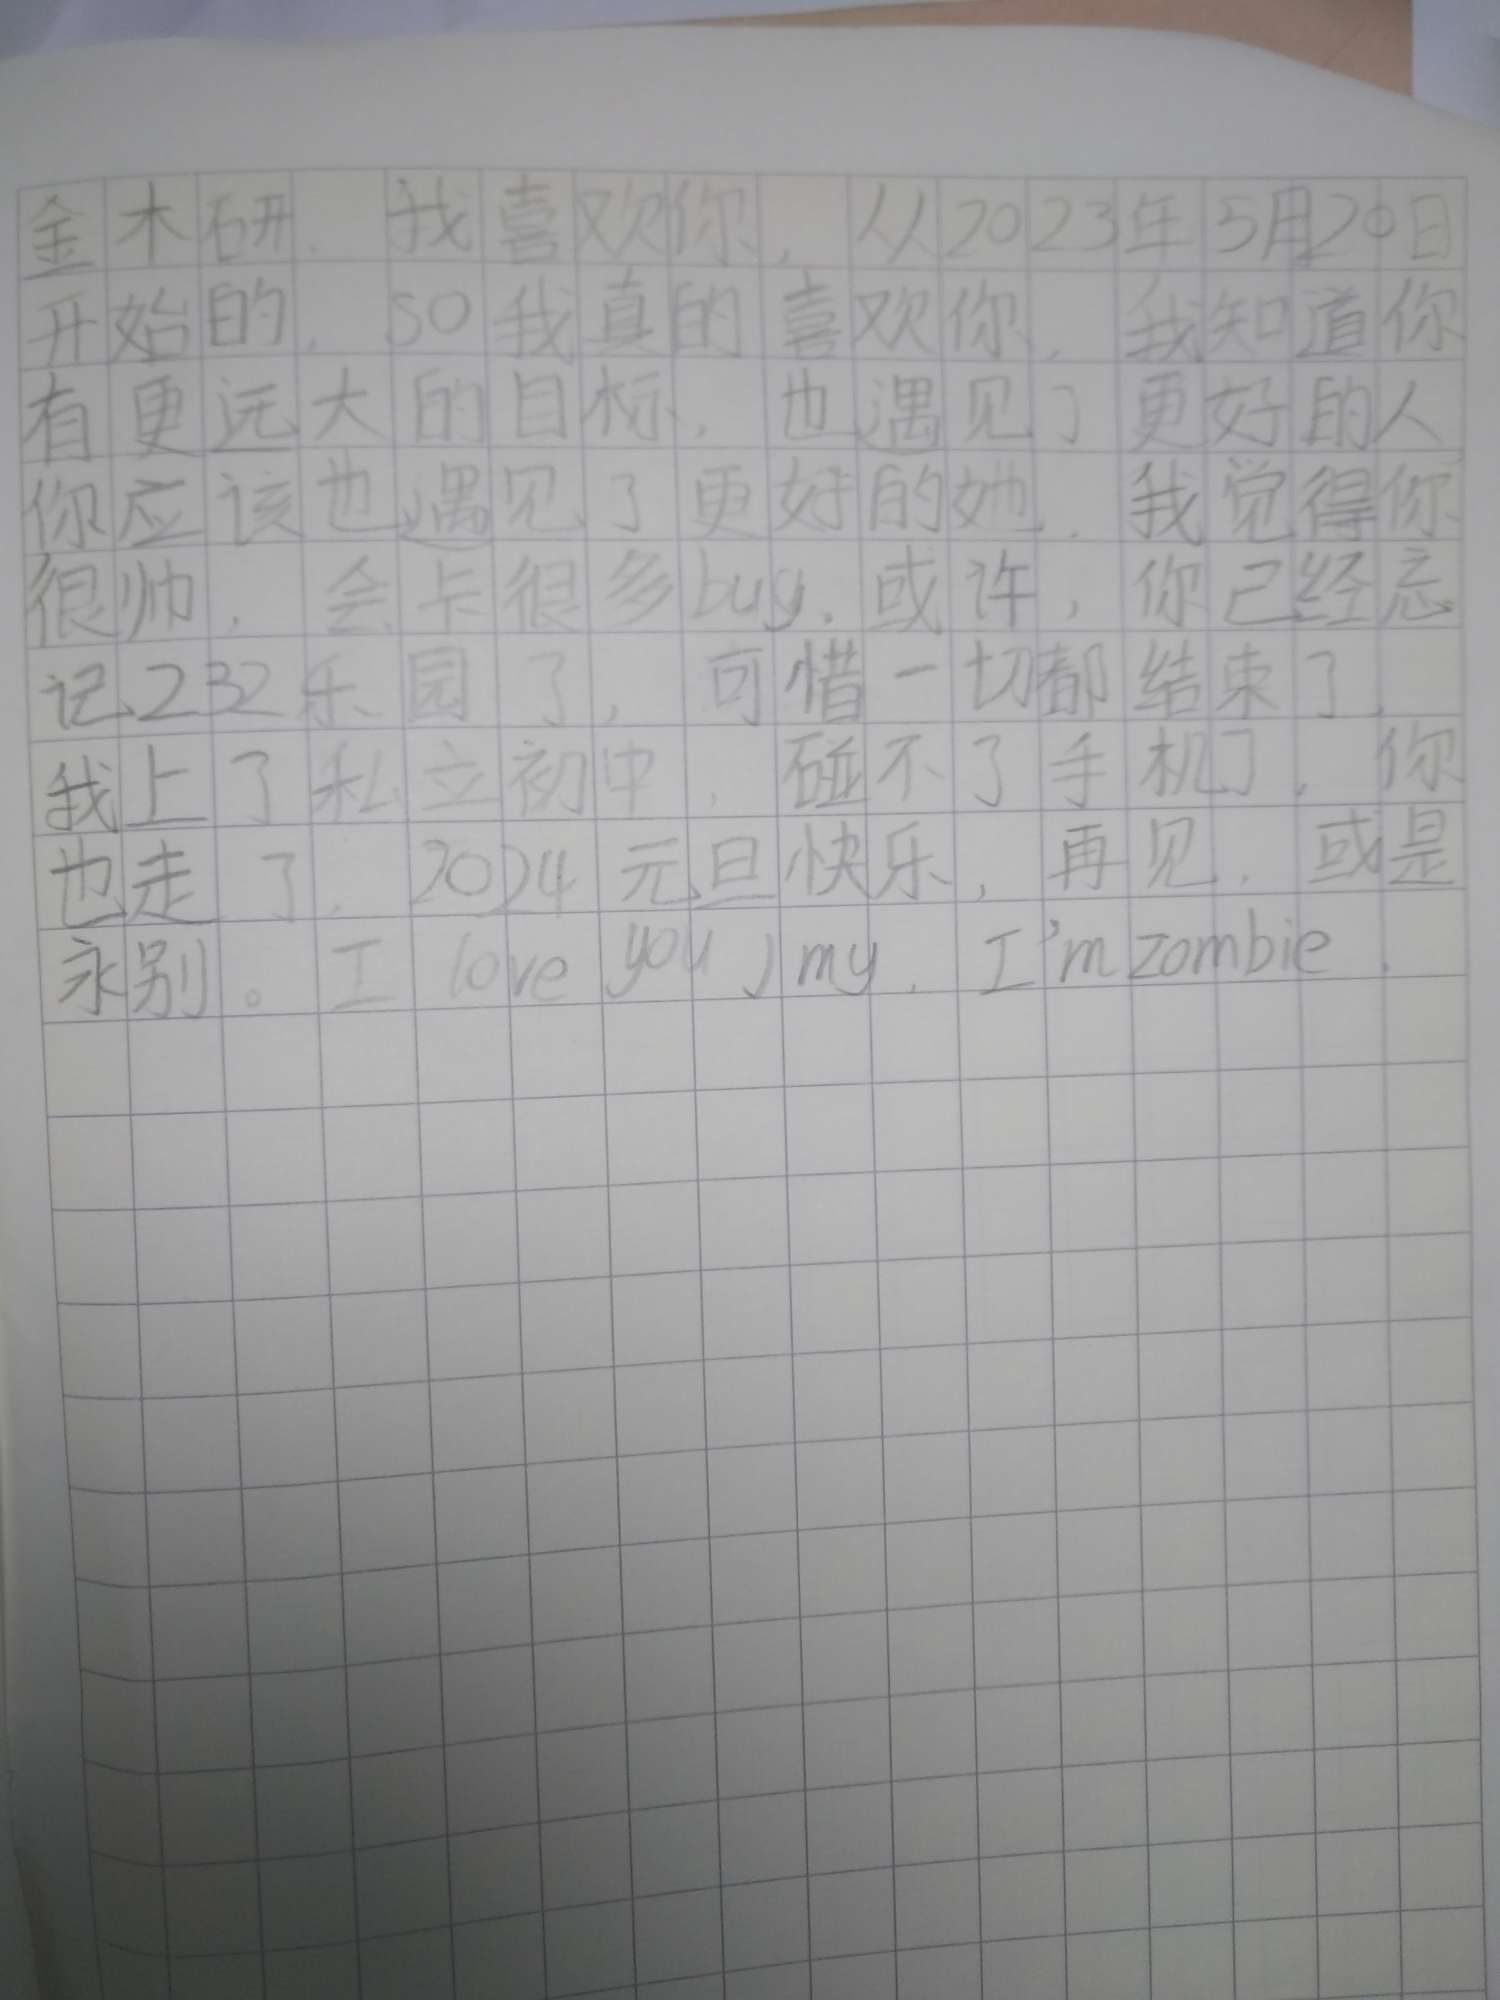 金木研，我喜欢你，从2023年5月20日
开始的，so我真的喜欢你，我知道你
有更远大的目标，也遇见了更好的人
你应该也遇见了更好的她，我觉得你
很帅，会卡很多bug，或许，你已经忘
记232乐园了，可惜一切都结束了，
我上了私立初中，碰不了手机了，你
也走了，2024元旦快乐，再见，或是
永别。I love you，my，I'm zombie，